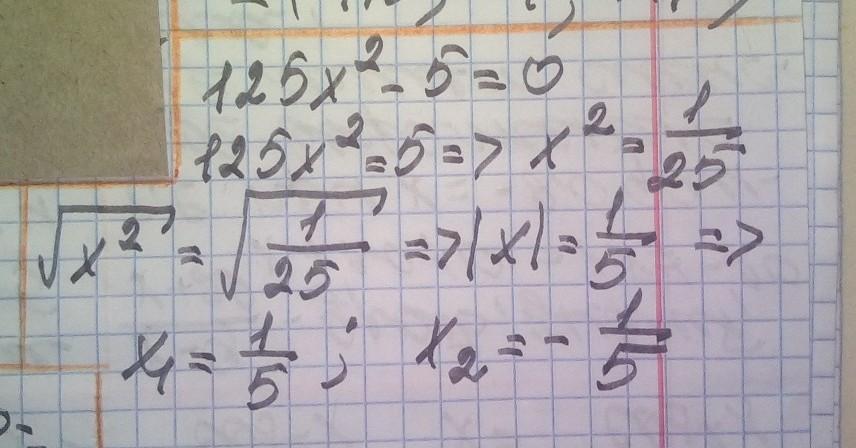 125x² - 5 = 0
125x² = 5 => x² = 1/25
√x² = √(1/25) => |x| = 1/5 =>
x₁ = 1/5 ; x₂ = - 1/5